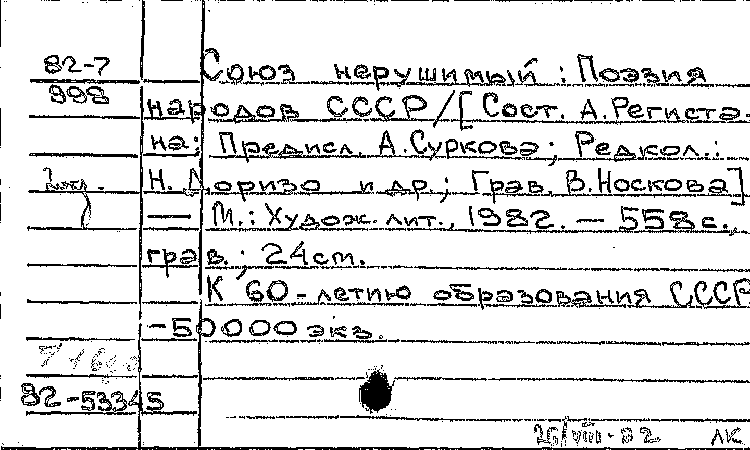 82-7 Союз нерушимый : Поэзия
998 народов СССР / [Сост. А. Региста-
на; Предисл. А. Суркова; Редкол.:
Н. Доризо и др.; Грав. В. Носкова]
— М.: Худож. лит., 1982. — 558 с.,
грав.; 24 см.
К 60-летию образования СССР
-50000 экз.
82-53345
26/VIII-82 ЛК